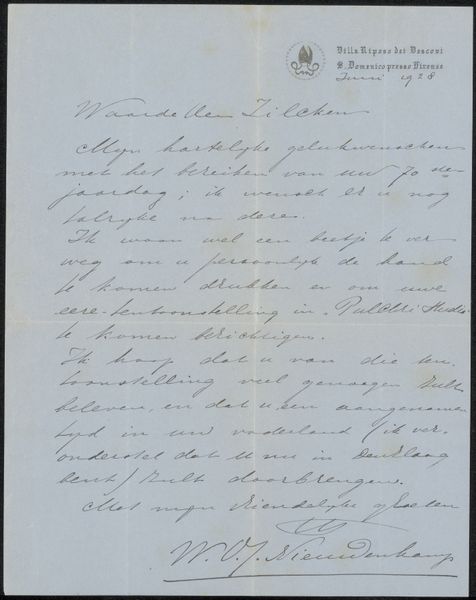 Villa Riposo dei Vescovi
S. Domenico presso Firenze
Juni 1928
Waarde Heer Zilcken
Mijn hartelijke gelukwenschen
met het bereiken van uw 70 ste
jaardag; ik wensch er u nog
talrijke na deze.
Ik woon wel een beetje te ver
weg om u persoonlijk de hand
te komen drukken en om uwe
eere-tentoonstelling in "Pulchri Studio"
te komen bezichtigen.
Ik hoop dat u van die ten-
toonstelling veel genoegen zult
beleven, en dat u een aangenamen
tijd in uw vaderland (ik ver-
onderstel dat u nu in Den Haag
bent) zult doorbrengen.
Met mijn vriendelijke groeten
W.O.J. Nieuwenkamp